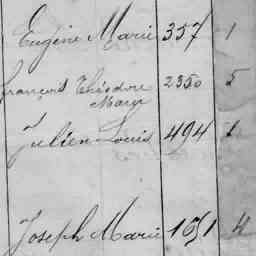 Eugène Marie 357 1
François Théodore 2350 5
Marie
Julien Louis 494 1
Joseph Marie 1051 4